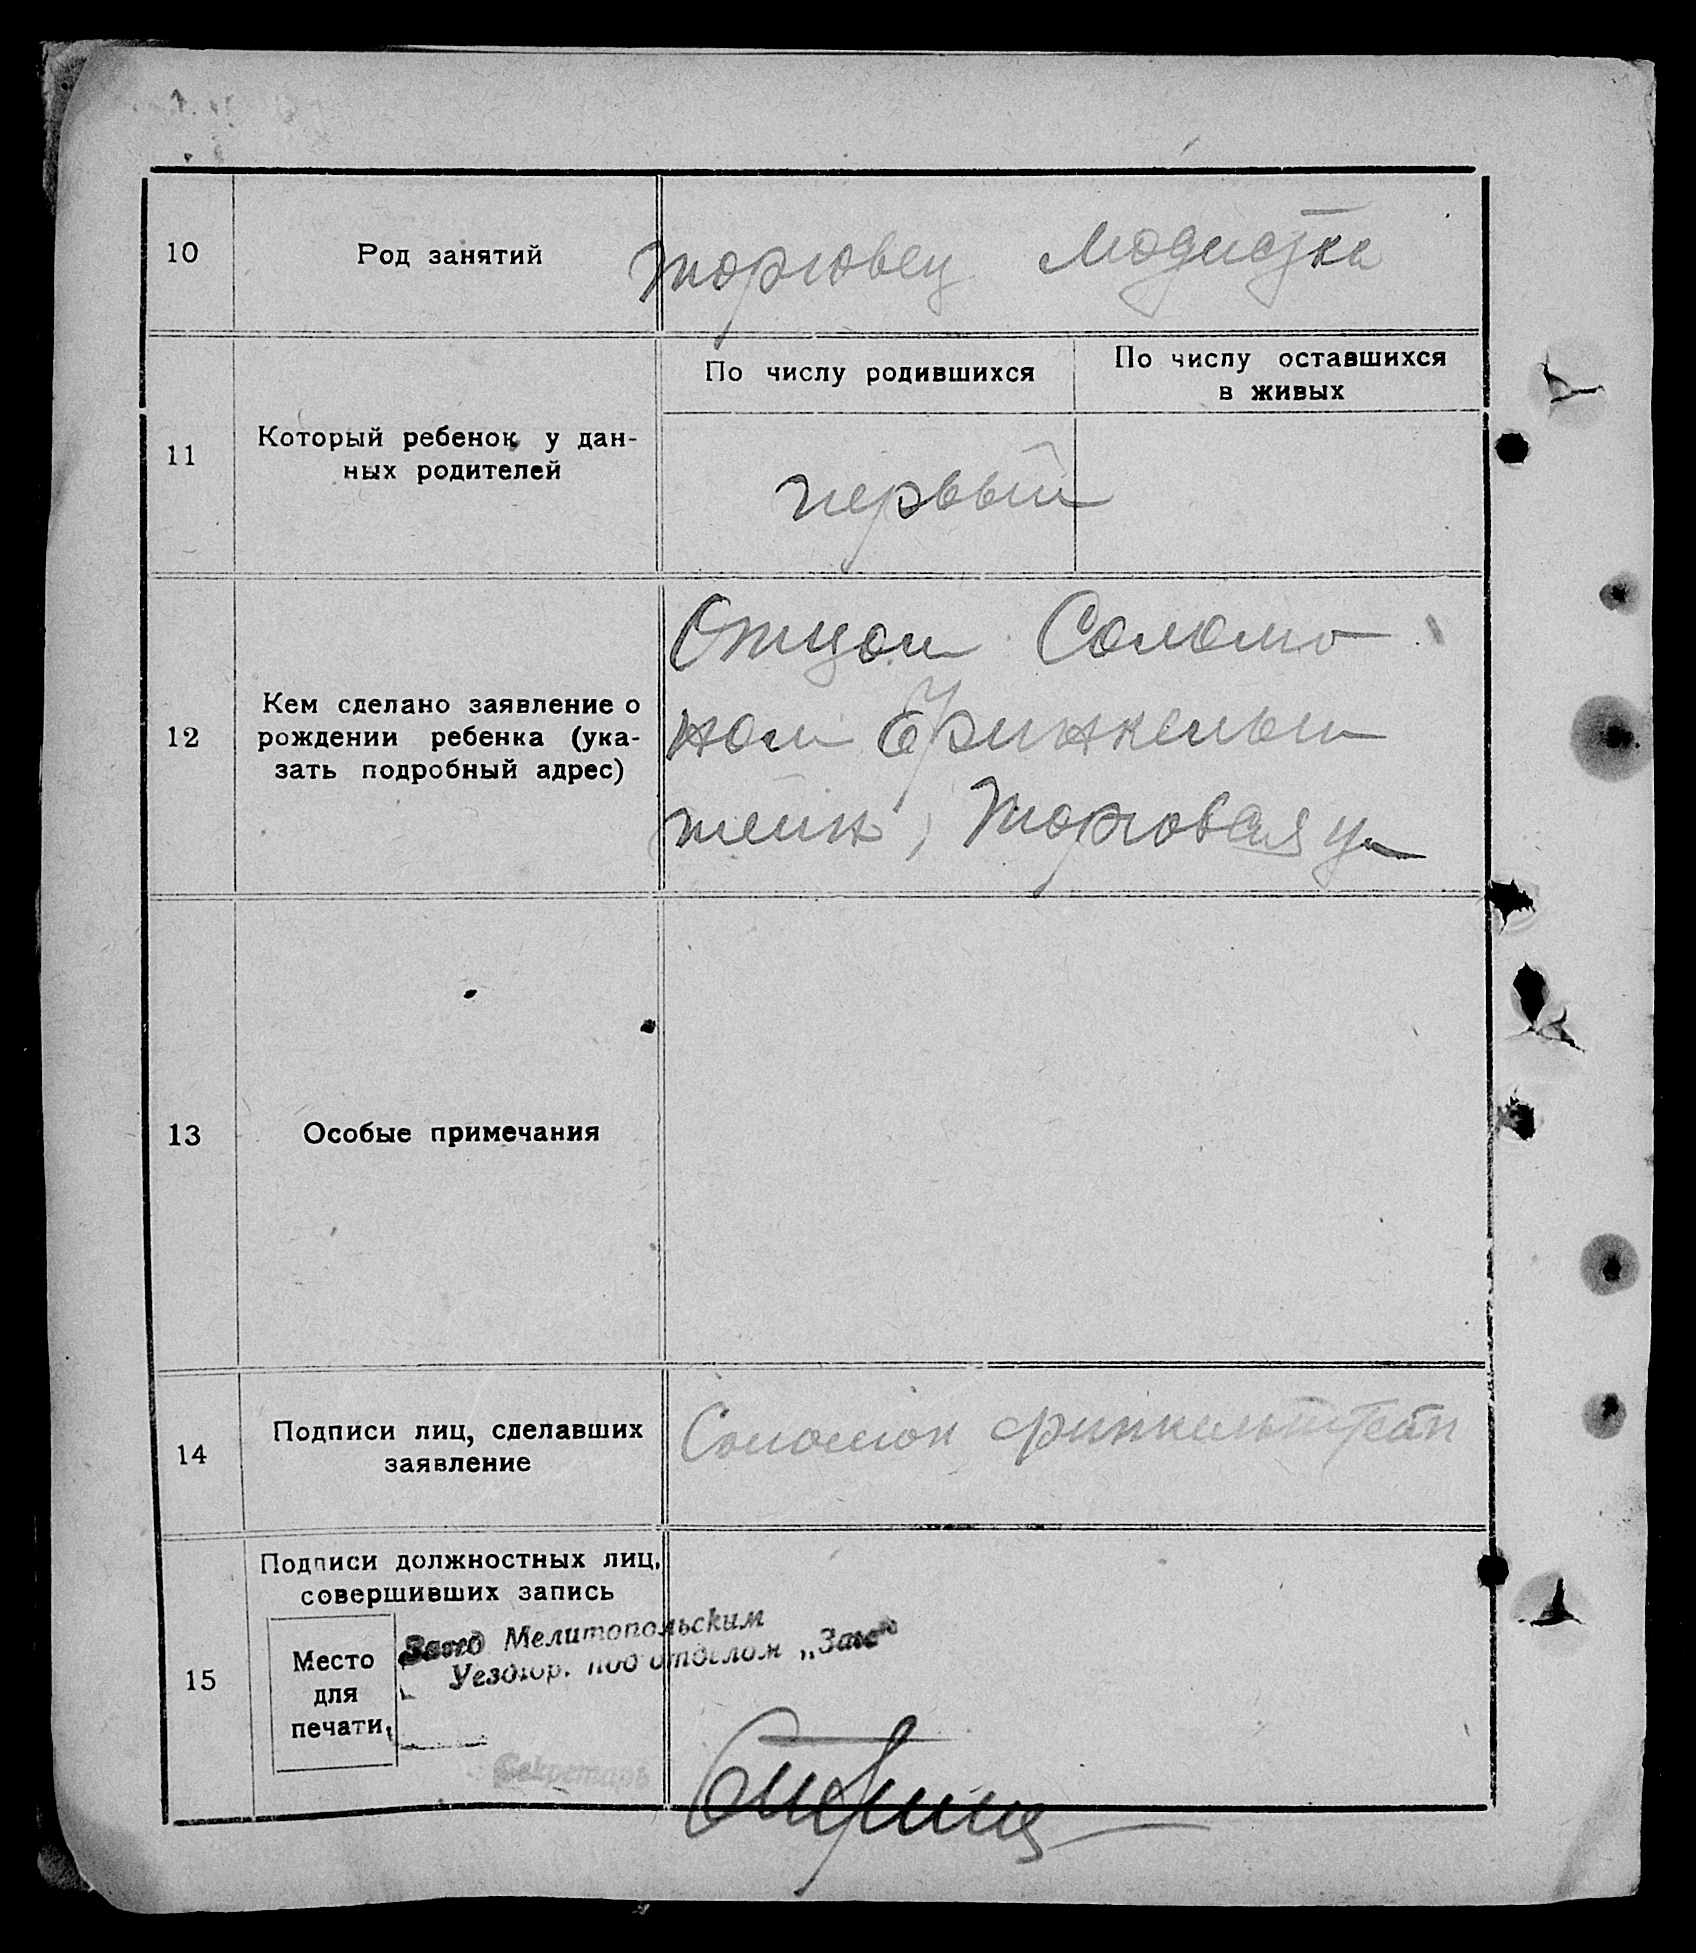 10
Род занятий
торговец модистка
11
Который ребенок у дан-
ных родителей
По числу родившихся
По числу оставшихся
в живых
первый
12
Кем сделано заявление о
рождении ребенка (ука-
зать подробный адрес)
Отцом Соломо
ном Финкельш
тейн, Торговая ул
13
Особые примечания
14
Подписи лиц, сделавших
заявление
Соломон Финкельштейн
15
Подписи должностных лиц,
совершивших запись
Место
для
печати,
Мелитопольским
Уездгор. подотделом „Загс“
Секретарь